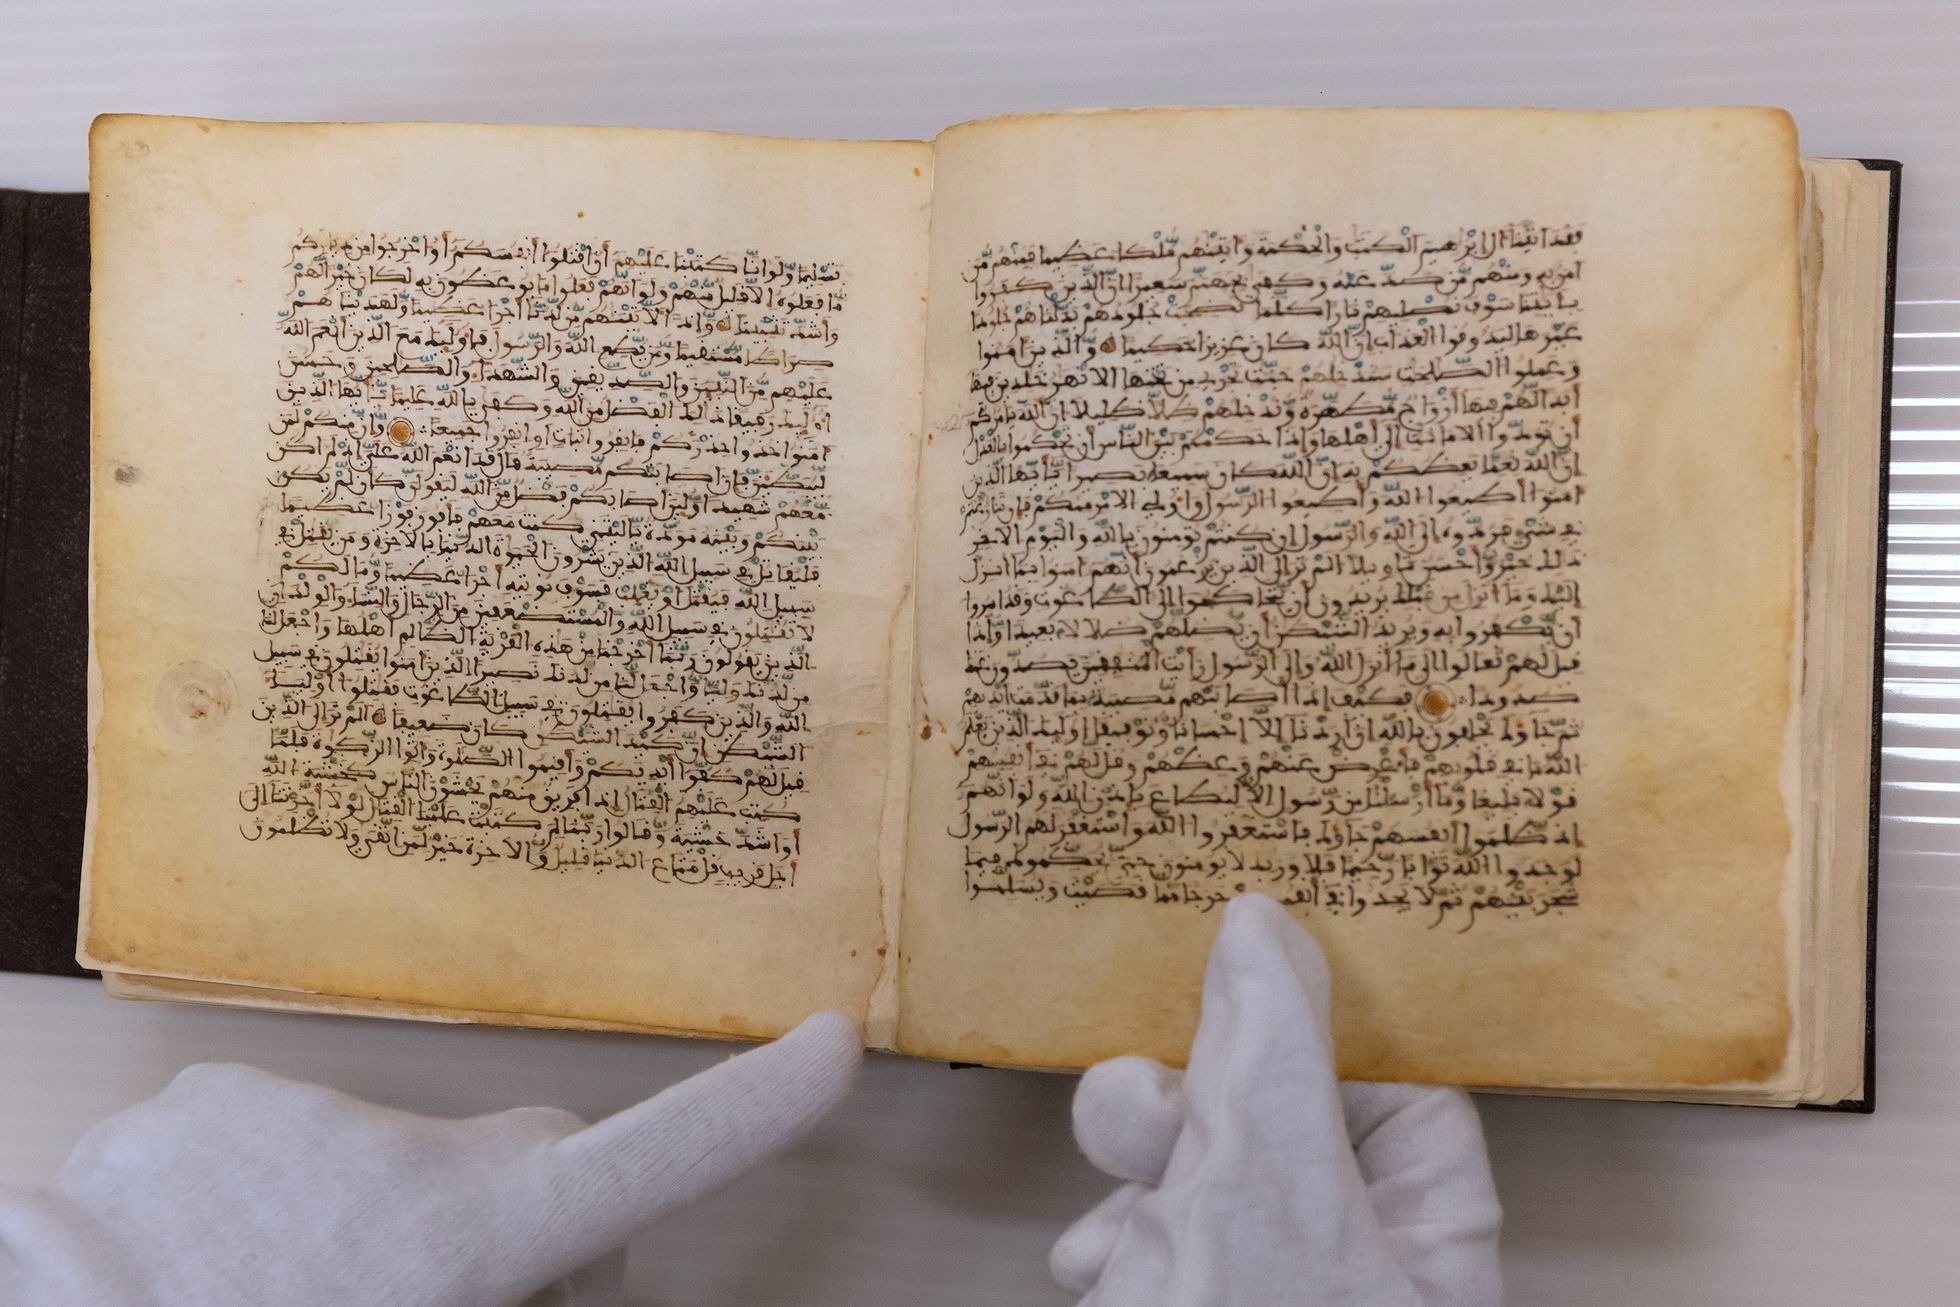 فقد اتينا ال ابرهيم الكتب والحكمة واتينهم ملكا عظيما فمنهم من
امن به ومنهم من صد عنه وكفى بجهنم سعيرا ان الذين كفروا
بايتنا سوف نصليهم نارا كلما نضجت جلودهم بدلنهم جلودا
غيرها ليذوقوا العذاب ان الله كان عزيزا حكيما والذين امنوا
وعملوا الصلحت سندخلهم جنت تجري من تحتها الانهر خلدين فيها
ابدا لهم فيها ازوج مطهرة وندخلهم ظلا ظليلا ان الله يامركم
ان تودوا الامانت الى اهلها واذا حكمتم بين الناس ان تحكموا بالعدل
ان الله نعما يعظكم به ان الله كان سميعا بصيرا يايها الذين
امنوا اطيعوا الله واطيعوا الرسول واولي الامر منكم فان تنازعتم
في شيء فردوه الى الله والرسول ان كنتم تومنون بالله واليوم الاخر
ذلك خير واحسن تاويلا الم تر الى الذين يزعمون انهم امنوا بما انزل
اليك وما انزل من قبلك يريدون ان يتحاكموا الى الطاغوت وقد امروا
ان يكفروا به ويريد الشيطن ان يضلهم ضلالا بعيدا واذا
قيل لهم تعالوا الى ما انزل الله والى الرسول رايت المنفقين يصدون عنك
صدودا فكيف اذا اصابتهم مصيبة بما قدمت ايديهم
ثم جاوك يحلفون بالله ان اردنا الا احسانا وتوفيقا اوليك الذين يعلم
الله ما في قلوبهم فاعرض عنهم وعظهم وقل لهم في انفسهم
قولا بليغا وما ارسلنا من رسول الا ليطاع باذن الله ولو انهم
اذ ظلموا انفسهم جاوك فاستغفروا الله واستغفر لهم الرسول
لوجدوا الله توابا رحيما فلا وربك لا يومنون حتى يحكموك فيما
شجر بينهم ثم لا يجدوا في حرجا مما قضيت ويسلموا
تسليما ولو انا كتبنا عليهم ان اقتلوا انفسكم او اخرجوا من دياركم
ما فعلوه الا قليل منهم ولو انهم فعلوا ما يوعظون به لكان خيرا لهم
واشد تثبيتا واذا لاتينهم من لدنا اجرا عظيما ولهدينهم
صراطا مستقيما ومن يطع الله والرسول فاوليك مع الذين انعم الله
عليهم من النبيين والصديقين والشهدا والصالحين وحسن
اوليك رفيقا ذلك الفضل من الله وكفى بالله عليما يايها الذين
امنوا خذوا حذركم فانفروا ثبات او انفروا جميعا وان منكم لمن
ليبطين فان اصابتكم مصيبة قال قد انعم الله علي اذ لم اكن
معهم شهيدا ولين اصابكم فضل من الله ليقولن كان لم يكن
بينكم وبينه مودة ياليتني كنت معهم فافوز فوزا عظيما
فليقاتل في سبيل الله الذين يشرون الحيوة الدنيا بالاخرة ومن يقتل في
سبيل الله فيقتل او يغلب فسوف نوتيه اجرا عظيما وما لكم
لا تقتلون في سبيل الله والمستضعفين من الرجال والنسا والولدان
الذين يقولون ربنا اخرجنا من هذه القرية الظالم اهلها واجعل لنا
من لدنك وليا واجعل لنا من لدنك نصيرا الذين امنوا يقتلون في سبيل
الله والذين كفروا يقتلون في سبيل الطاغوت فقتلوا اوليا
الشيطن ان كيد الشيطن كان ضعيفا الم تر الى الذين
قيل لهم كفوا ايديكم واقيموا الصلوة واتوا الزكوة فلما
كتب عليهم القتال اذا فريق منهم يخشون الناس كخشية الله
او اشد خشية وقالوا ربنا لم كتبت علينا القتال لولا اخرتنا الى
اجل قريب قل متاع الدنيا قليل والاخرة خير لمن اتقى ولا تظلمون